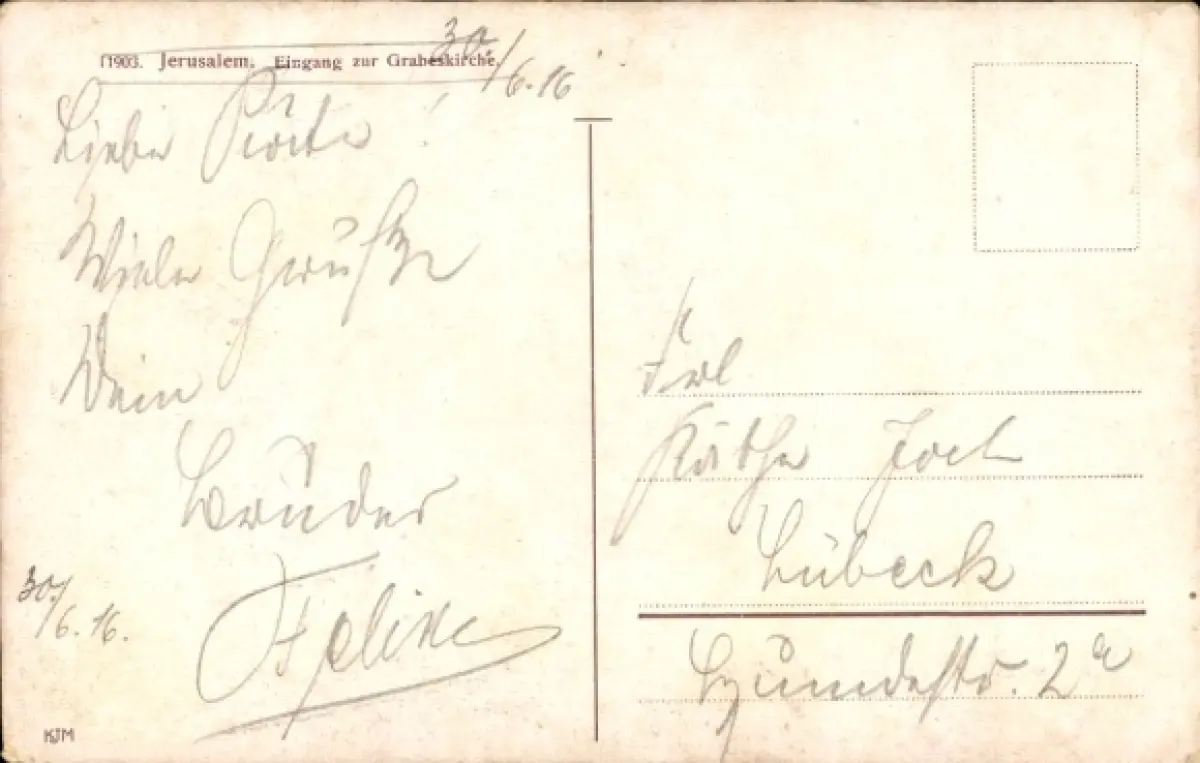 11903. Jerusalem. Eingang zur Grabeskirche.
30./6.16
Liebe Käte!
Viele Grüße
Dein
Bruder
30./6.16.
KJM
Frl
Käthe
Lübeck
Hundestr. 2a